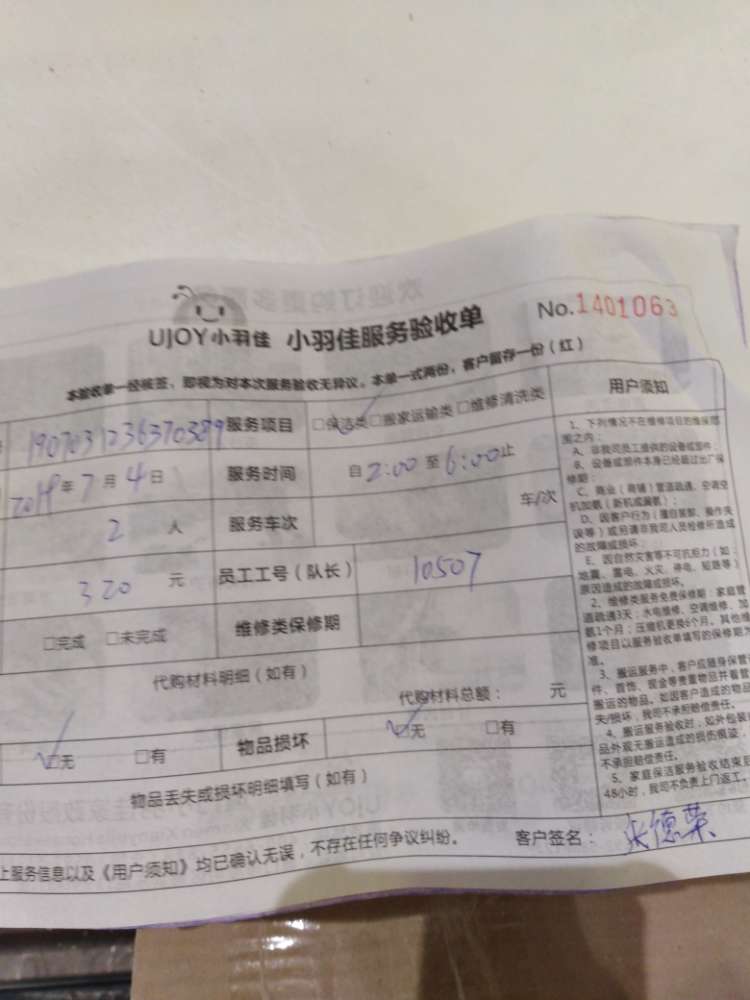 UJOY小羽佳 小羽佳服务验收单 No.1401063
本验收单一经核签，即视为对本次服务验收无异议。本单一式两份，客户留存一份（红）
1907031236370389 服务项目 □保洁类 □搬家运输类 □维修清洗类
2019年7月4日 服务时间 自2:00至6:00止
2人 服务车次 车/次
320元 员工工号（队长） 10507
□完成 □未完成 维修类保修期
代购材料明细（如有） 代购材料总额： 元
□无 □有 物品损坏 □无 □有
物品丢失或损坏明细填写（如有）
上服务信息以及《用户须知》均已确认无误，不存在任何争议纠纷。 客户签名：
用户须知
1、下列情况不在维修项目的维保范
围之内：
A、非我司员工提供的设备或部件；
B、设备或部件本身已经超过出厂保
修期；
C、商业（商铺）管道疏通、空调空
机加氨（新机或漏氨）；
D、因客户行为（擅自装卸、操作失
误等）或另请非我司人员检修所造成
的故障或损坏；
E、因自然灾害等不可抗拒力（如：
地震、雷电、火灾、停电、短路等）
原因造成的故障或损坏。
2、维修类服务免费保修期：家庭管
道疏通3天；水电维修、空调维修、加
氨1个月；压缩机更换6个月。其他维
修项目以服务验收单填写的保修期为
准。
3、搬运服务中，客户应随身保管
件、首饰、现金等贵重物品并看管
搬运的物品。如因客户造成的物品
失/损坏，我司不承担赔偿责任。
4、搬运服务验收时，如外包装
品外观无搬运造成的损伤痕迹，
不承担赔偿责任。
5、家庭保洁服务验收结束后
48小时，我司不负责上门返工。